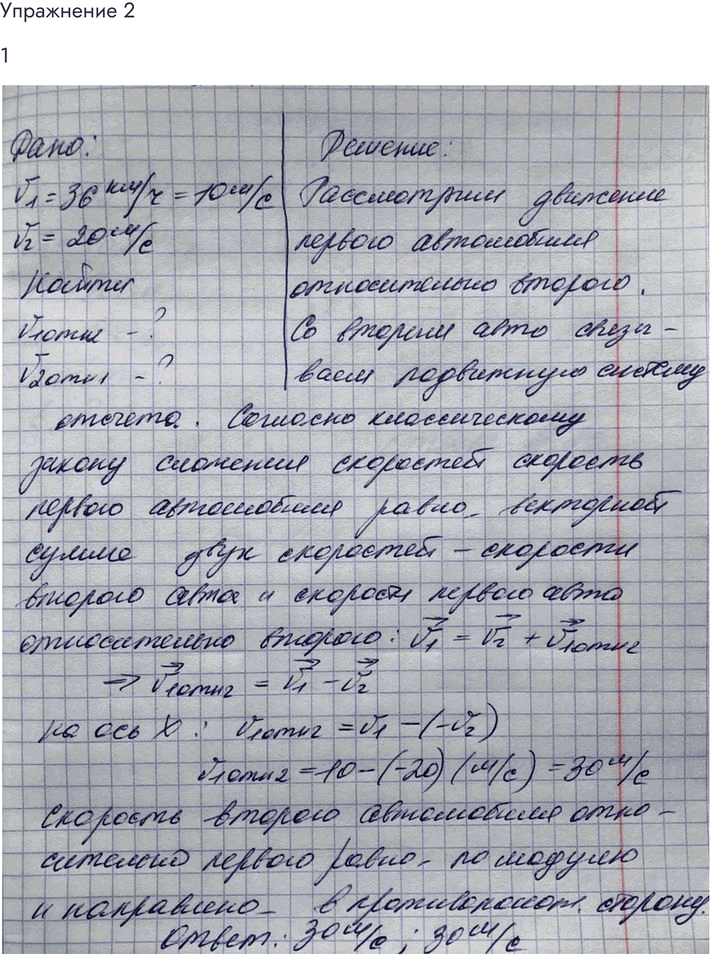 Упражнение 2
1
Дано:
v₁ = 36 км/ч = 10 м/с
v₂ = 20 м/с
Найти
v₁отн2 - ?
v₂отн1 - ?
Решение:
Рассмотрим движение
первого автомобиля
относительно второго.
Со вторым авто связы-
ваем подвижную систему
отсчета. Согласно классическому
закону сложения скоростей скорость
первого автомобиля равна векторной
сумме двух скоростей – скорости
второго авто и скорости первого авто
относительно второго: v⃗₁ = v⃗₂ + v⃗₁отн2
⇒ v⃗₁отн2 = v⃗₁ − v⃗₂
на ось X: v₁отн2 = v₁ − (−v₂)
v₁отн2 = 10 − (−20) (м/с) = 30 м/с
Скорость второго автомобиля отно-
сительно первого равна по модулю
и направлена в противополож. сторону.
Ответ: 30 м/с ; 30 м/с